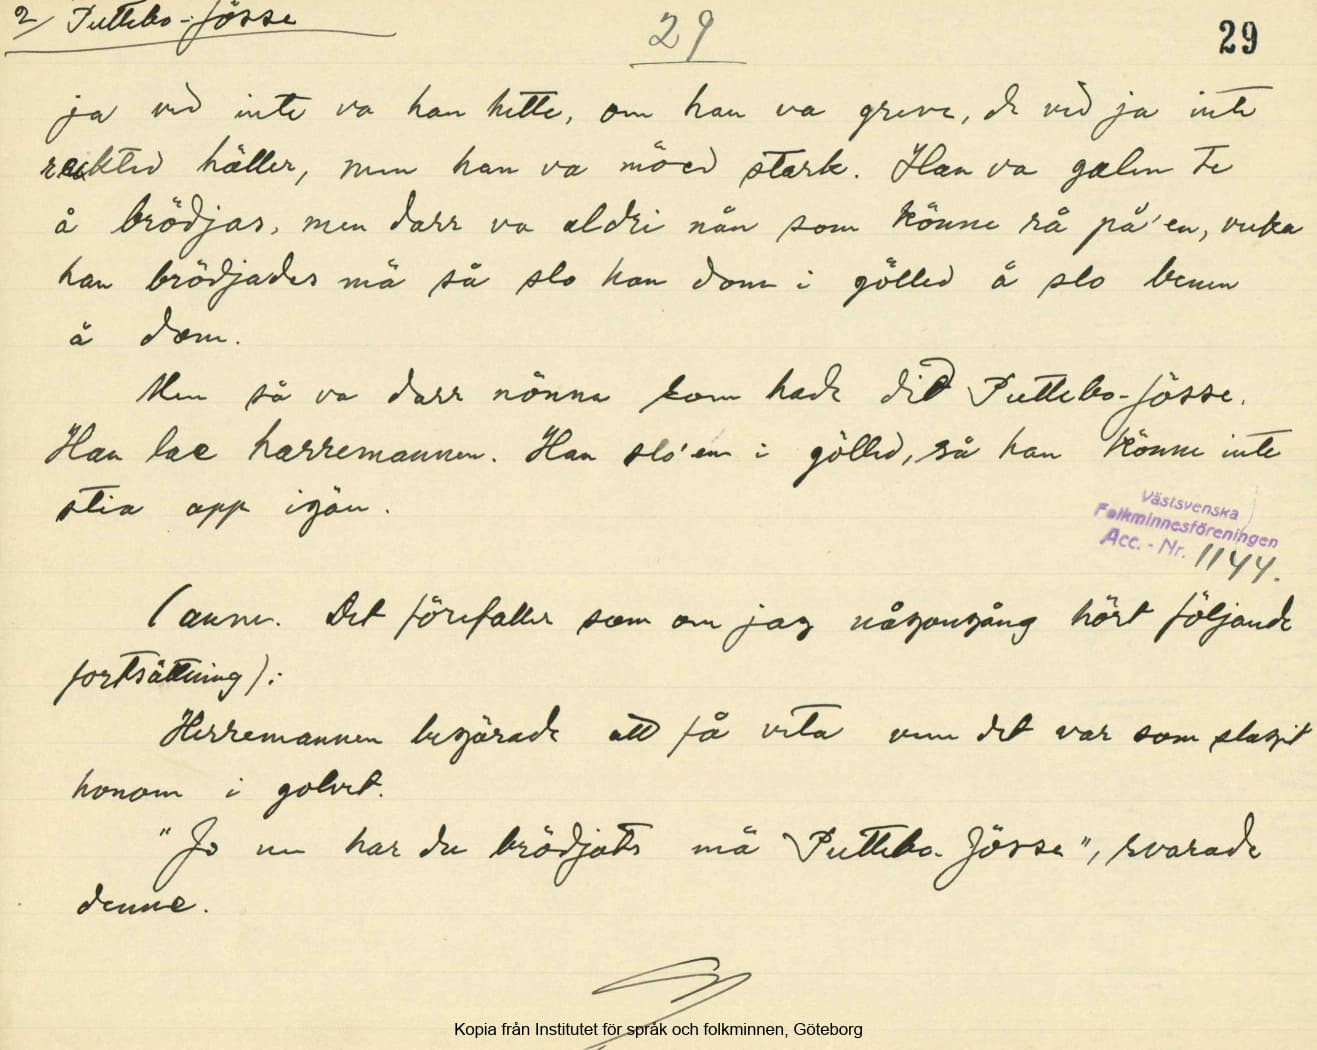 2/ Puttebo-Jösse
29
29
ja ved inte va han hette, om han va greve, de ved ja inte
reckted häller, men han va möed stark. Han va galen te
å brödjas, men darr va aldri nån som könne rå på'en, vuka
han brödjades mä så slo han dom i gölled å slo benen
å dom.
Men så va darr nönna som hade did Puttebo-Jösse.
Han lae harremannen. Han slo'en i gölled, så han könne inte
stia opp igän.
Västsvenska
Folkminnesföreningen
Acc. - Nr. 1144.
(anm. Det förefaller som om jag någongång hört följande
fortsättning):
Herremannen begärade att få veta vem det var som slagit
honom i golvet.
"Jo nu har du brödjats mä Puttebo-Jösse", svarade
denne.
Kopia från Institutet för språk och folkminnen, Göteborg